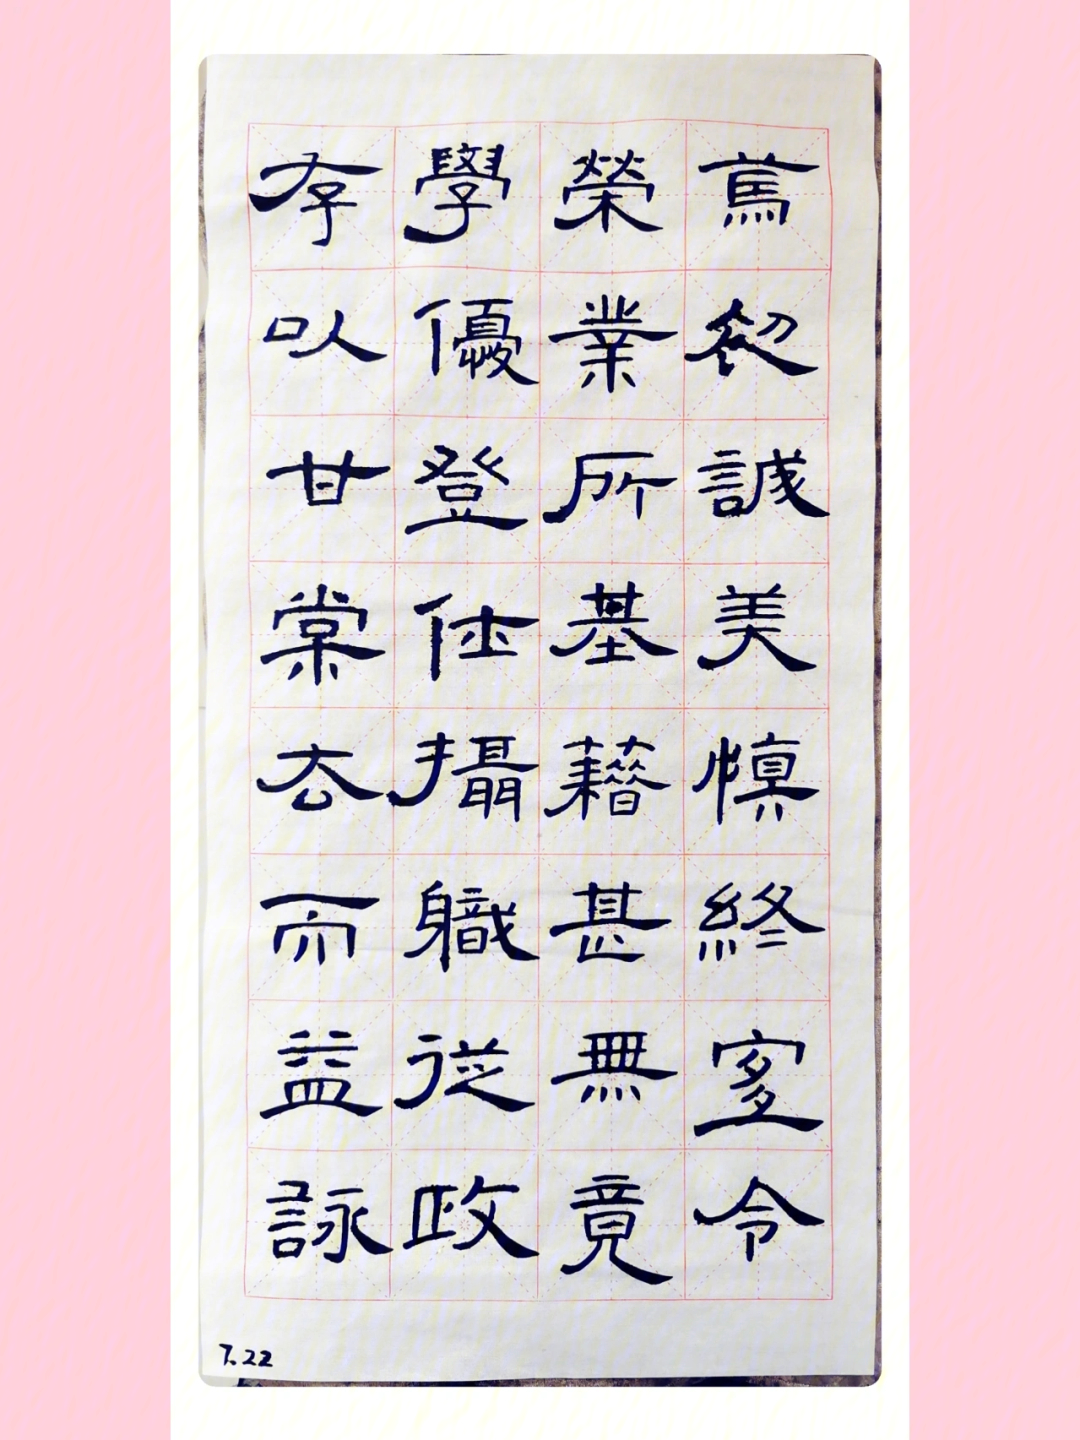 萬初誠美慎終宜令
榮業所基藉甚無竟
學優登仕攝職從政
存以甘棠去而益詠
7.22